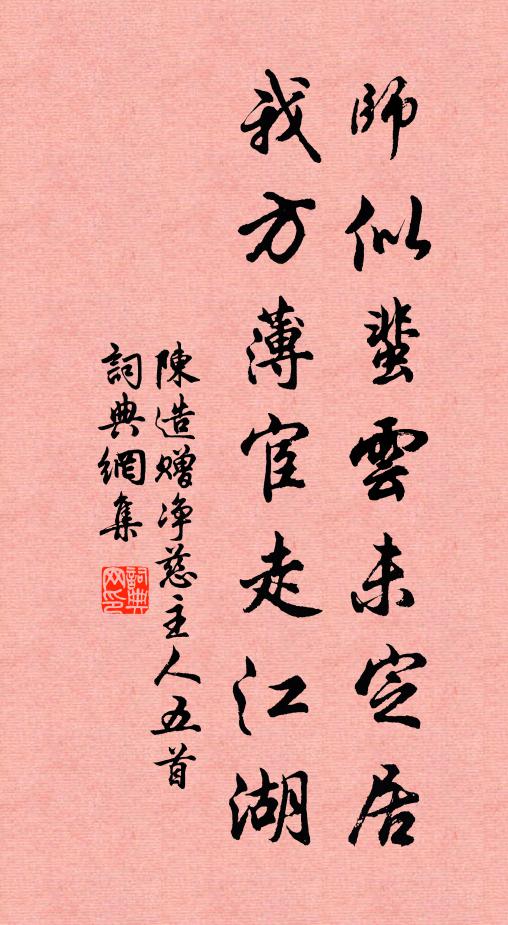 師似蜚雲未定居
我方薄宦走江湖
陳造贈净慈主人五首
詞典網集
詞典网印